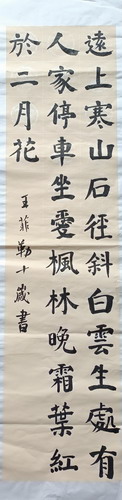 遠上寒山石徑斜白雲生處有
人家停車坐愛楓林晚霜葉紅
於二月花
王菲勒十歲書